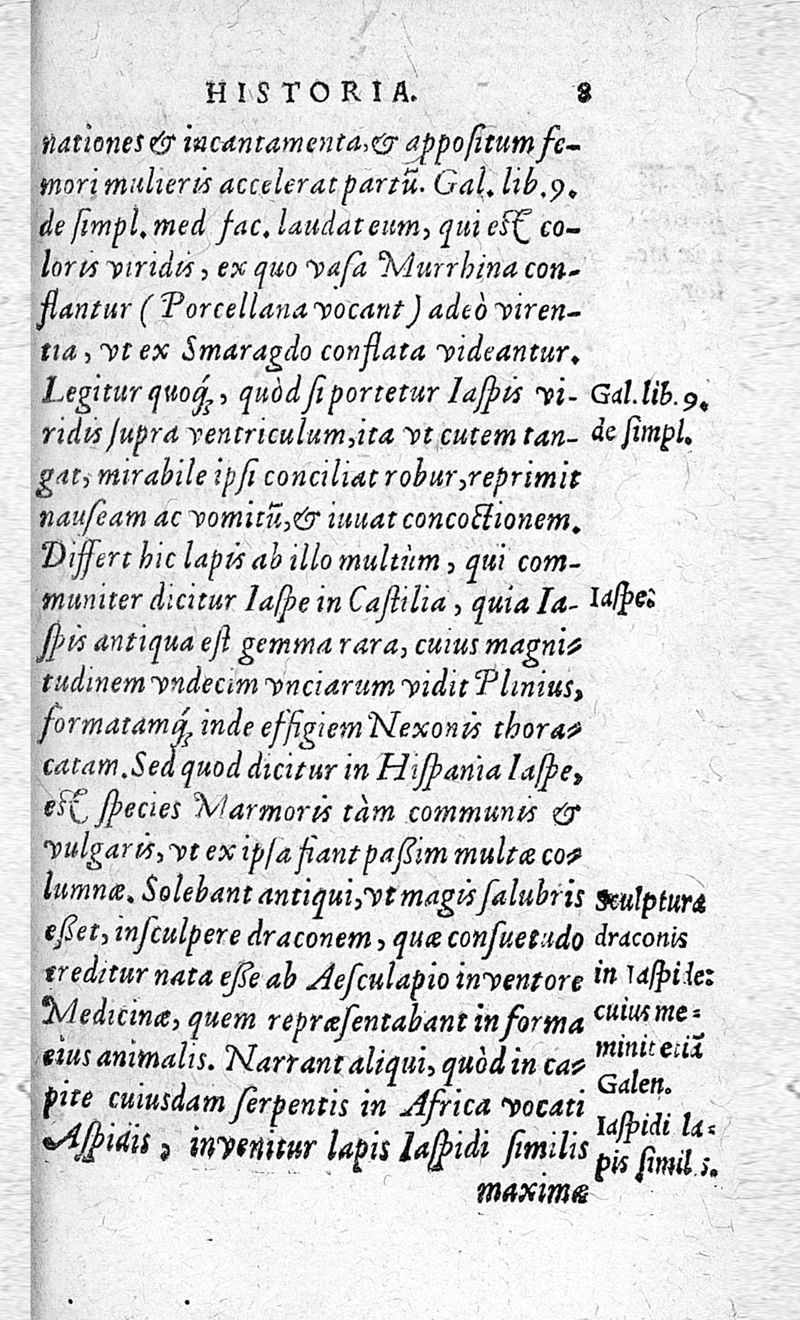 HISTORIA. 8
nationes & incantamenta, & appoſitum fe-
mori mulieris accelerat partũ. Gal. lib. 9.
de ſimpl. med fac. laudat eum, qui eſt co-
loris viridis, ex quo vaſa Murrhina con-
flantur (Porcellana vocant) adeò viren-
tia, vt ex Smaragdo conflata videantur.
Legitur quoq́;, quòd ſi portetur Iaſpis vi-
ridis ſupra ventriculum, ita vt cutem tan-
gat, mirabile ipſi conciliat robur, reprimit
nauſeam ac vomitũ, & iuuat concoctionem.
Differt hic lapis ab illo multùm, qui com-
muniter dicitur Iaſpe in Caſtilia, quia Ia-
ſpis antiqua eſt gemma rara, cuius magni-
tudinem vndecim vnciarum vidit Plinius,
formatamq́; inde effigiem Nexonis thora-
catam. Sed quod dicitur in Hiſpania Iaſpe,
eſt ſpecies Marmoris tàm communis &
vulgaris, vt ex ipſa fiant paßim multæ co-
lumnæ. Solebant antiqui, vt magis ſalubris
eßet, inſculpere draconem, quæ conſuetudo
creditur nata eße ab Aeſculapio inventore
Medicinæ, quem repræſentabant in forma
eius animalis. Narrant aliqui, quòd in ca-
pite cuiusdam ſerpentis in Africa vocati
Aſpidis, invenitur lapis Iaſpidi ſimilis
maximæ
Gal. lib. 9.
de ſimpl.
Iaſpe:
Sculptura
draconis
in Iaſpide:
cuius me-
minit etiã
Galen.
Iaſpidi la-
pis ſimil s.